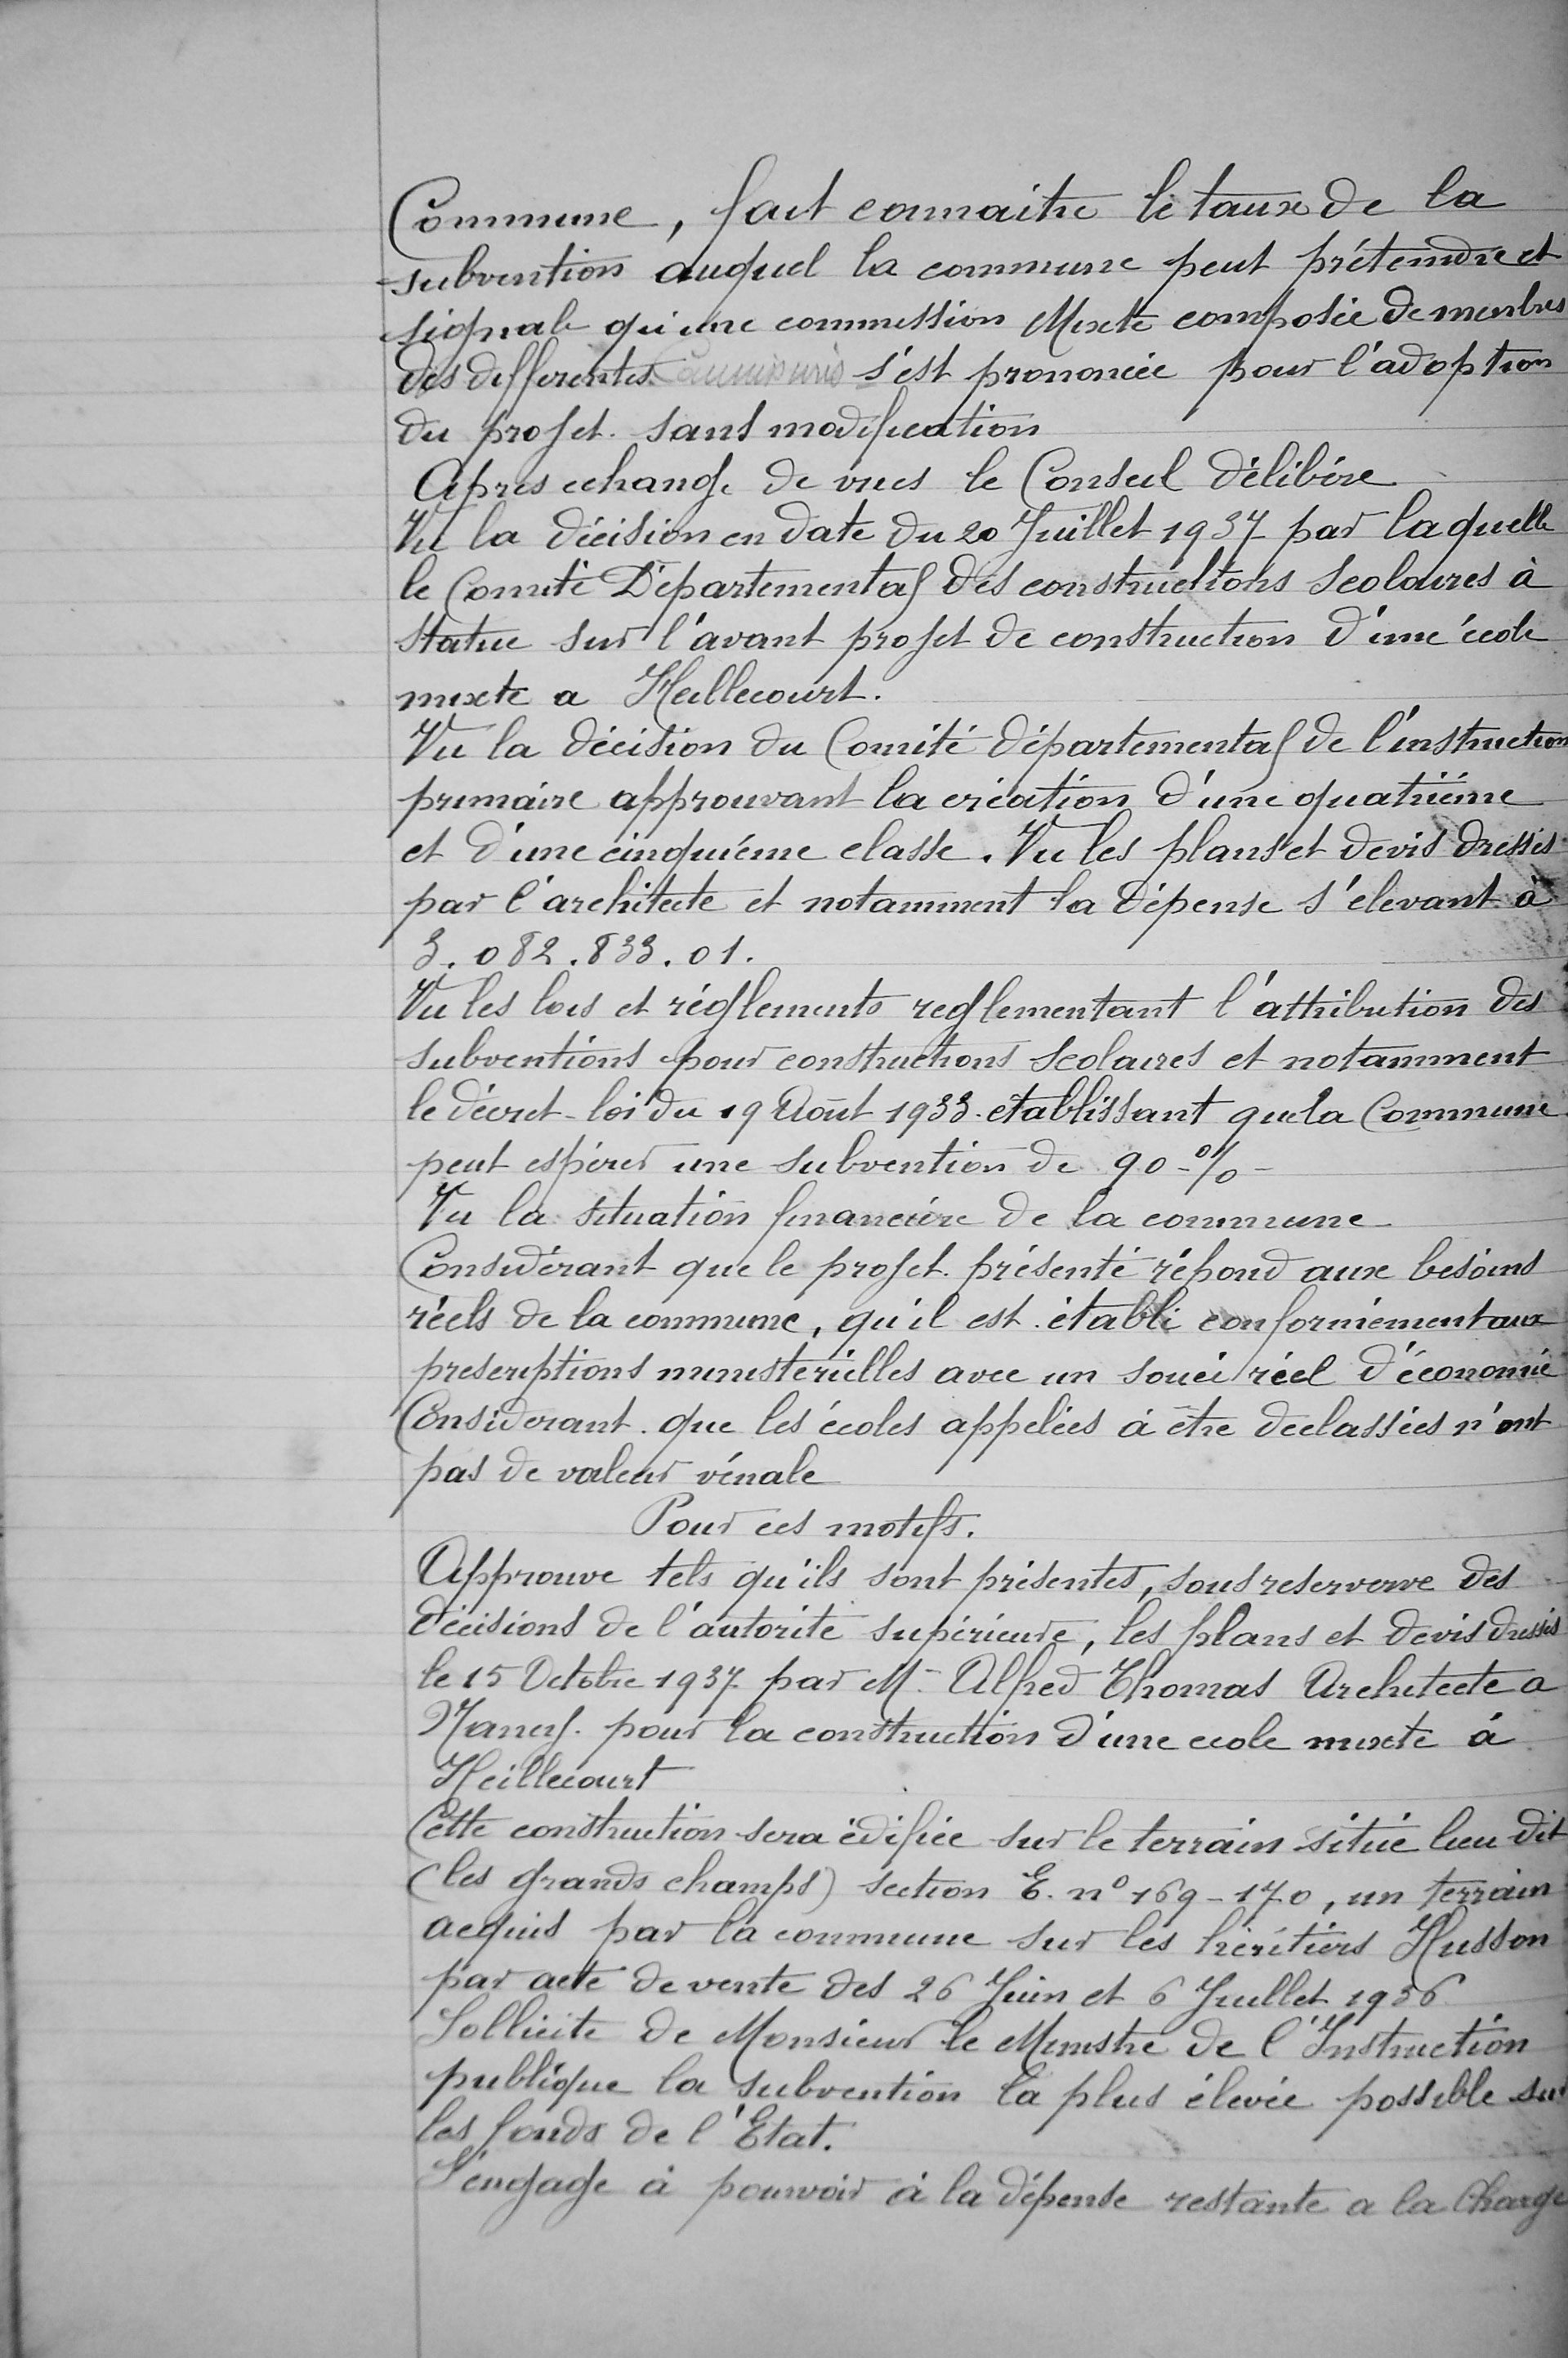 Commune, fait connaitre le taux de la
subvention auquel la commune peut prétendre et
signale qu'une commission Mixte composée de membres
des differentes s'est prononcée pour l'adoption
du projet. sans modification
Apres echange de vues le Conseil délibére
Vu la décision en date du 20 Juillet 1937 par laquelle
le Comité Départemental des constructions scolaires à
statue sur l'avant projet de construction d'une école
mixte a Heillecourt.
Vu la décision du Comité départemental de l'instruction
primaire approuvant la création d'une quatriéme
et d'une cinquiéme classe. Vu les plans et devis dressés
par l'architecte et notamment la dépense s'élevant à
3.082.833.01.
Vu les lois et réglements reglementant l'attribution des
subventions pour constructions scolaires et notamment
le décret-loi du 19 Août 1933. etablissant que la Commune
peut espérer une subvention de 90 % -
Vu la situation financière de la commune
Considérant que le projet. présenté répond aux besoins
réels de la commune, qu'il est. établi conformément aux
prescriptions ministérielles avec un souci réel d'économie
Considerant. que les écoles appelées à être declassées n'ont
pas de valeur vénale
Pour ces motifs.
Approuve tels qu'ils sont présentes, sous reserverve des
décisions de l'autorite supérieure, les plans et devis dressés
le 15 Octobre 1937 par Mr Alfred Thomas Architecte a
Nancy. pour la construction d'une ecole mixte à
Heillecourt
Cette construction sera édifiée sur le terrain situé lieu dit
(les grands champs) section E. n° 169-170, un terrain
acquis par la commune sur les héritiers Husson
par acte de vente des 26 Juin et 6 Juillet 1936
Sollicite de Monsieur le Ministre de l'Instruction
publique la subvention la plus élevée possible sur
les fonds de l'Etat.
S'engage à pourvoir à la dépense restante a la Charge